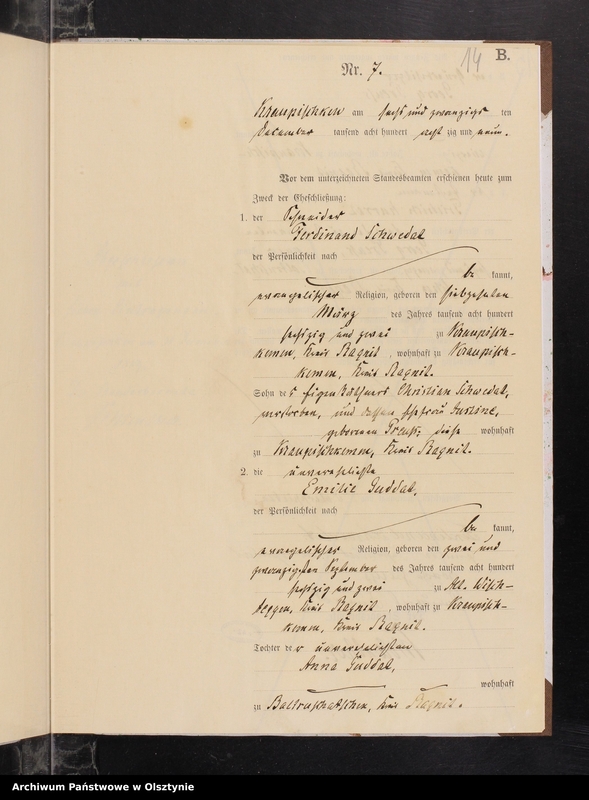 14
B.
Nr. 7.
Kraupischken am sechs und zwanzigs ten
December tausend acht hundert acht zig und neun.
Vor dem unterzeichneten Standesbeamten erschienen heute zum
Zweck der Eheschließung:
1. der Schneider
Ferdinand Schwedat
der Persönlichkeit nach
be kannt,
evangelischer Religion, geboren den siebzehnten
März des Jahres tausend acht hundert
sechszig und zwei zu Kraupisch-
kemen, Kreis Ragnit, wohnhaft zu Kraupisch-
kemen, Kreis Ragnit.
Sohn des Eigenkäthners Christian Schwedat,
verstorben, und dessen Ehefrau Justine,
geborenen Preuß, diese wohnhaft
zu Kraupischkemen, Kreis Ragnit.
2. die unverehelichte
Emilie Guddat,
der Persönlichkeit nach
be kannt,
evangelischer Religion, geboren den zwei und
zwanzigsten September des Jahres tausend acht hundert
sechszig und zwei zu Alt. Wisch-
teggen, Kreis Ragnit, wohnhaft zu Kraupisch-
kemen, Kreis Ragnit.
Tochter der unverehelichten
Anna Guddat,
wohnhaft
zu Baltruschatschen, Kreis Ragnit.
Archiwum Państwowe w Olsztynie